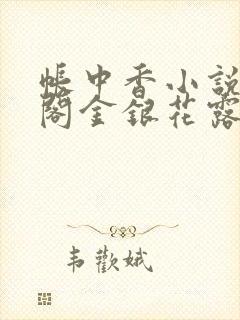 帳中香小說
閣金銀花露
韦歡娥